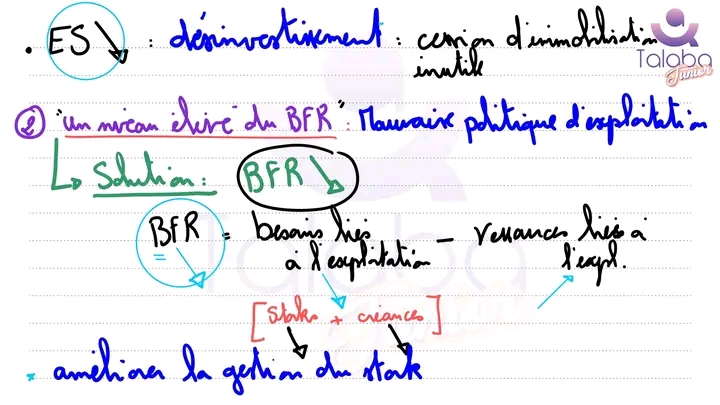 • ES ↘ : désinvestissement : cession d'immobilisation
inutile
Talaba
Junior
② "un niveau élevé du BFR" : Mauvaise politique d'exploitation
↳ Solution : BFR ↘
BFR = besoins liés à l'exploitation − ressources liés à l'expl.
[Stocks + créances]
* améliorer la gestion du stock